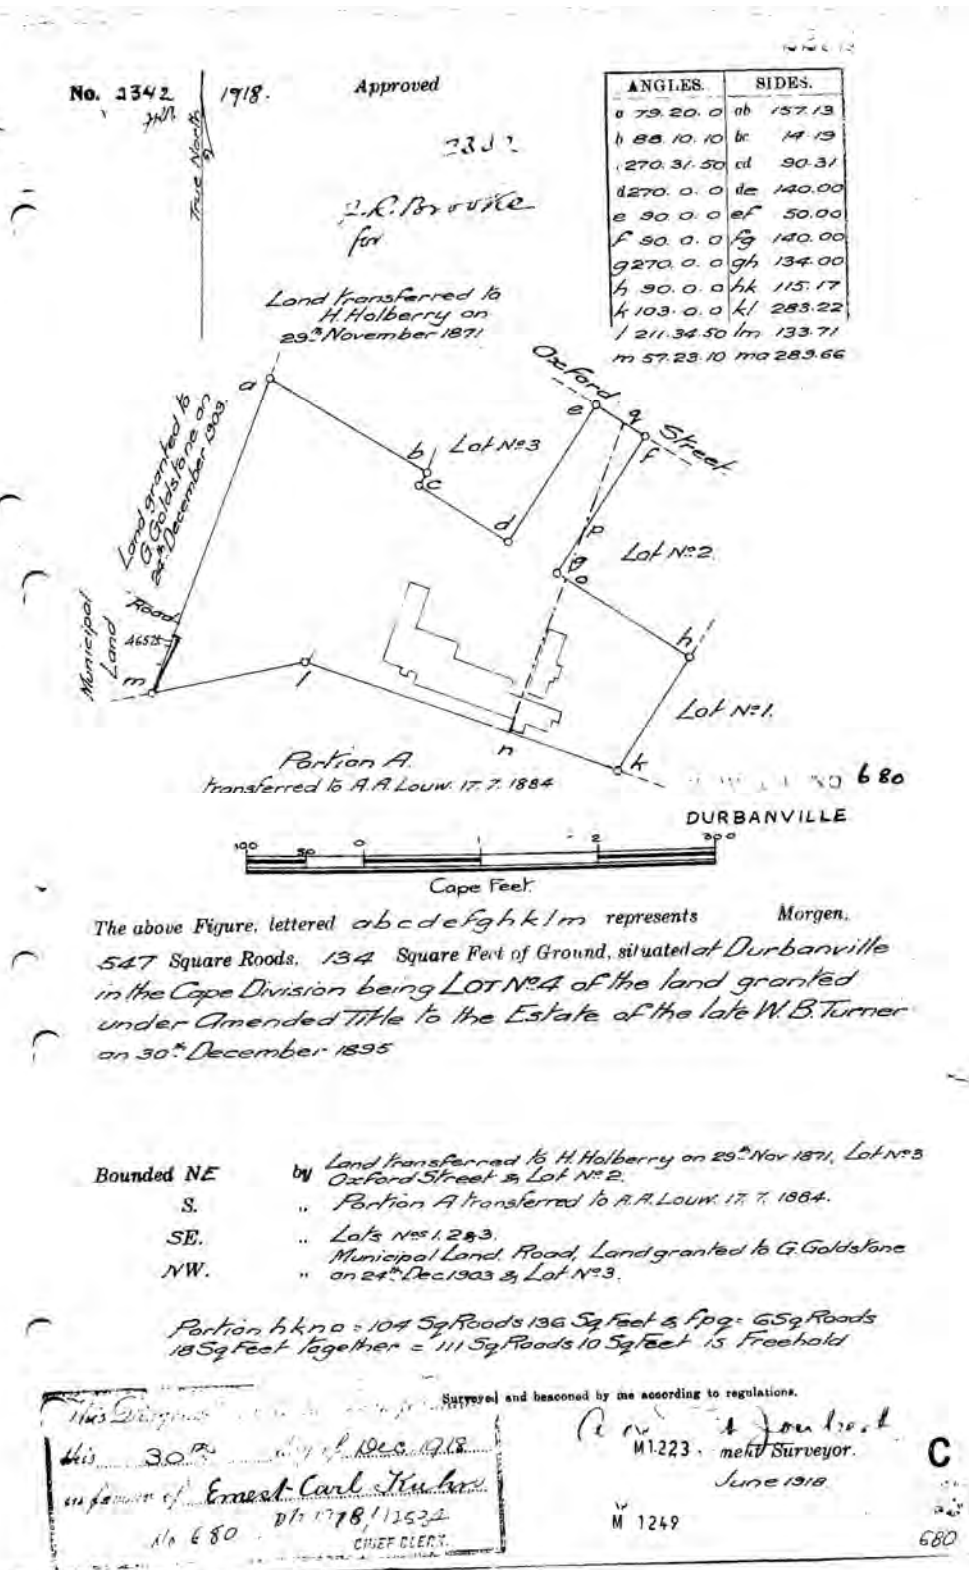 No. 2342 1918.
Approved
2342
for
True North
ANGLES. SIDES.
a 79.20.0 ab 157.13
b 88.10.10 bc 14.19
270.31.50 cd 90.31
d 270.0.0 de 140.00
e 90.0.0 ef 50.00
f 90.0.0 fg 140.00
g 270.0.0 gh 134.00
h 90.0.0 hk 115.17
k 103.0.0 kl 283.22
l 211.34.50 lm 133.71
m 57.23.10 ma 289.66
Land transferred to
H. Holberry on
29th November 1871
Oxford Street
a
e
q
f
b
Lot No 3
c
d
p
Lot No 2.
g
o
h
Land granted to
G. Goldstone on
24th December 1903.
Road
46525
Municipal
Land
m
l
n
k
Lot No 1.
Portion A.
transferred to A.A. Louw. 17.7.1884
680
DURBANVILLE
100 50 0 1 2 300
Cape Feet.
The above Figure, lettered a b c d e f g h k l m represents Morgen,
547 Square Roods, 134 Square Feet of Ground, situated at Durbanville
in the Cape Division being LOT No 4 of the land granted
under Amended Title to the Estate of the late W. B. Turner
on 30th December 1895
Bounded NE by Land transferred to H. Holberry on 29th Nov 1871, Lot No 3
Oxford Street & Lot No 2.
S. „ Portion A transferred to A.A. Louw. 17.7.1884.
SE. „ Lots Nos 1. 2 & 3.
NW. „ Municipal Land, Road, Land granted to G. Goldstone
on 24th Dec. 1903 & Lot No 3.
Portion h k n o = 104 Sq Roods 136 Sq Feet & f p g = 6 Sq Roods
18 Sq Feet together = 111 Sq Roods 10 Sq Feet is Freehold
Surveyed and beaconed by me according to regulations.
M1.223. Surveyor.
June 1918.
M 1249
This
this 30th day of Dec 1918
in favour of Ernest Carl Kuhn
No 680
CHIEF CLERK.
C
680